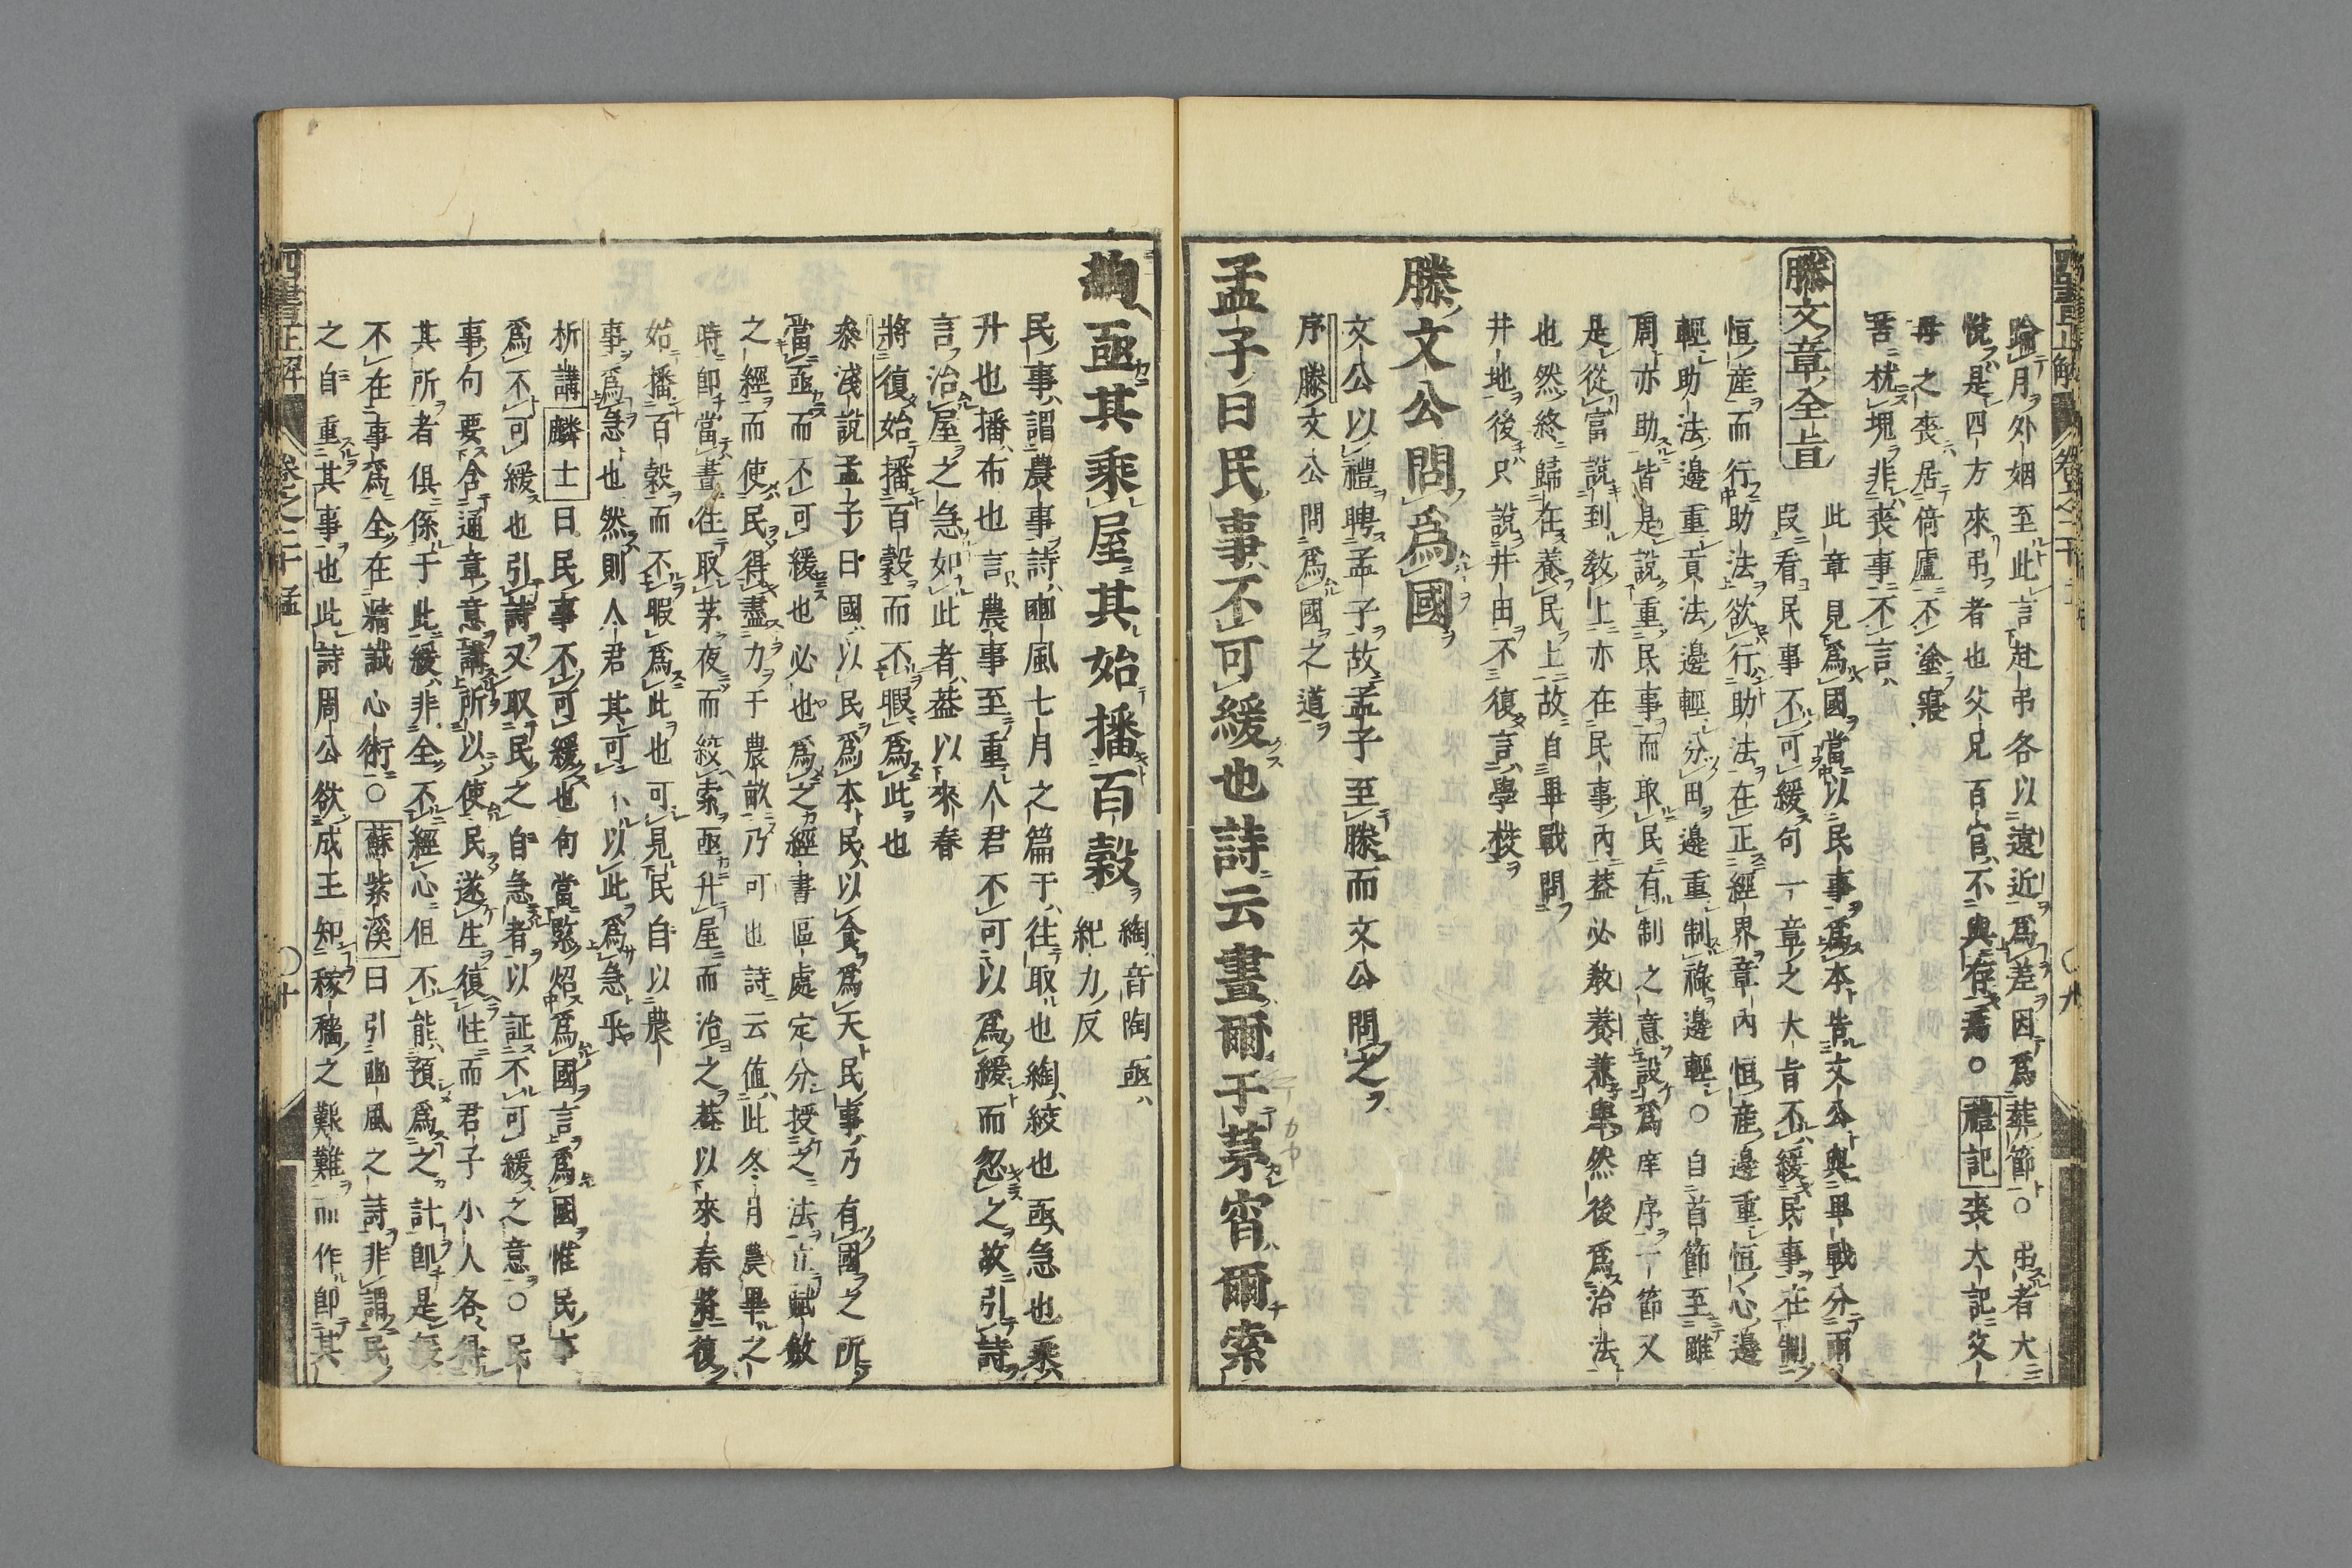 踰月外姻至此言赴弔各以遠近爲差因爲葬節○弔者大
悅是四方來弔者也父兄百官不與存焉○禮記喪大記父
母之喪居倚廬不塗寢
苫枕塊非喪事不言
滕文章全旨
此章見爲國當以民事爲本告文公與畢戰分兩
段看民事不可緩句一章之大旨不緩民事在制
恒產而行助法欲行助法在正經界章內恒產邊重恒心邊
輕助法邊重貢法邊輕分田邊重制祿邊輕○自首節至雖
周亦助皆是說重民事而取民有制之意設爲庠序一節又
是從富說到教上亦在民事內葢必教養兼舉然後爲治法
也然終歸在養民上故自畢戰問
井地後只說井田不復言學校
滕文公問爲國
文公以禮聘孟子故孟子至滕而文公問之
序滕文公問爲國之道
孟子曰民事不可緩也詩云晝爾于茅宵爾索
綯亟其乘屋其始播百穀
綯音陶亟
紀力反
民事謂農事詩豳風七月之篇于往取也綯絞也亟急也乘
升也播布也言農事至重人君不可以爲緩而忽之故引詩
言治屋之急如此者葢以來春
將復始播百穀而不暇爲此也
泰淺說孟子曰國以民爲本民以食爲天民事乃有國之所
當亟而不可緩也必也爲之經書區處定分授之法立賦斂
之經而使民得盡力于農畝乃可也詩云值此冬月農畢之
時卽當晝往取茅夜而絞索亟升屋而治之葢以來春將復
始播百穀而不暇爲此也可見民自以農
事爲急也然則人君其可不以此爲急乎
析講麟士曰民事不可緩也句當緊炤爲國言爲國惟民事
爲不可緩也引詩又取民之自急者以証不可緩之意○民
事句要含通章意講所以使民遂生復性而君子小人各得
其所者俱係于此緩非全不經心但不能預爲之計卽是緩
不在事爲全在精誠心術○蘇紫溪曰引豳風之詩非謂民
之自重其事也此詩周公欲成王知稼穡之艱難而作卽其